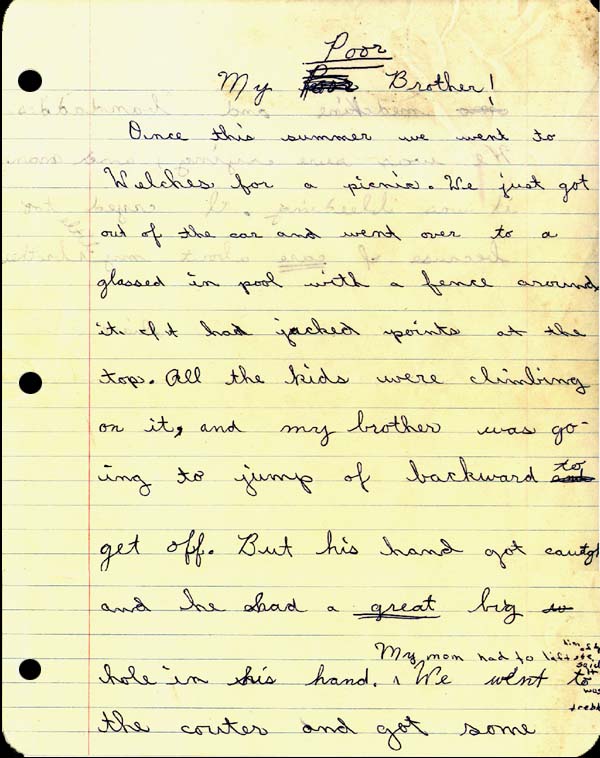 Poor
My Brother!
Once this summer we went to
Welches for a picnic. We just got
out of the car and went over to a
glassed in pool with a fence around
it. It had jacked points at the
top. All the kids were climbing
on it, and my brother was go-
ing to jump of backward to
get off. But his hand got cautgh
and he had a great big
My mom had to lift him
said it was
hole in his hand. We went to
the couter and got some